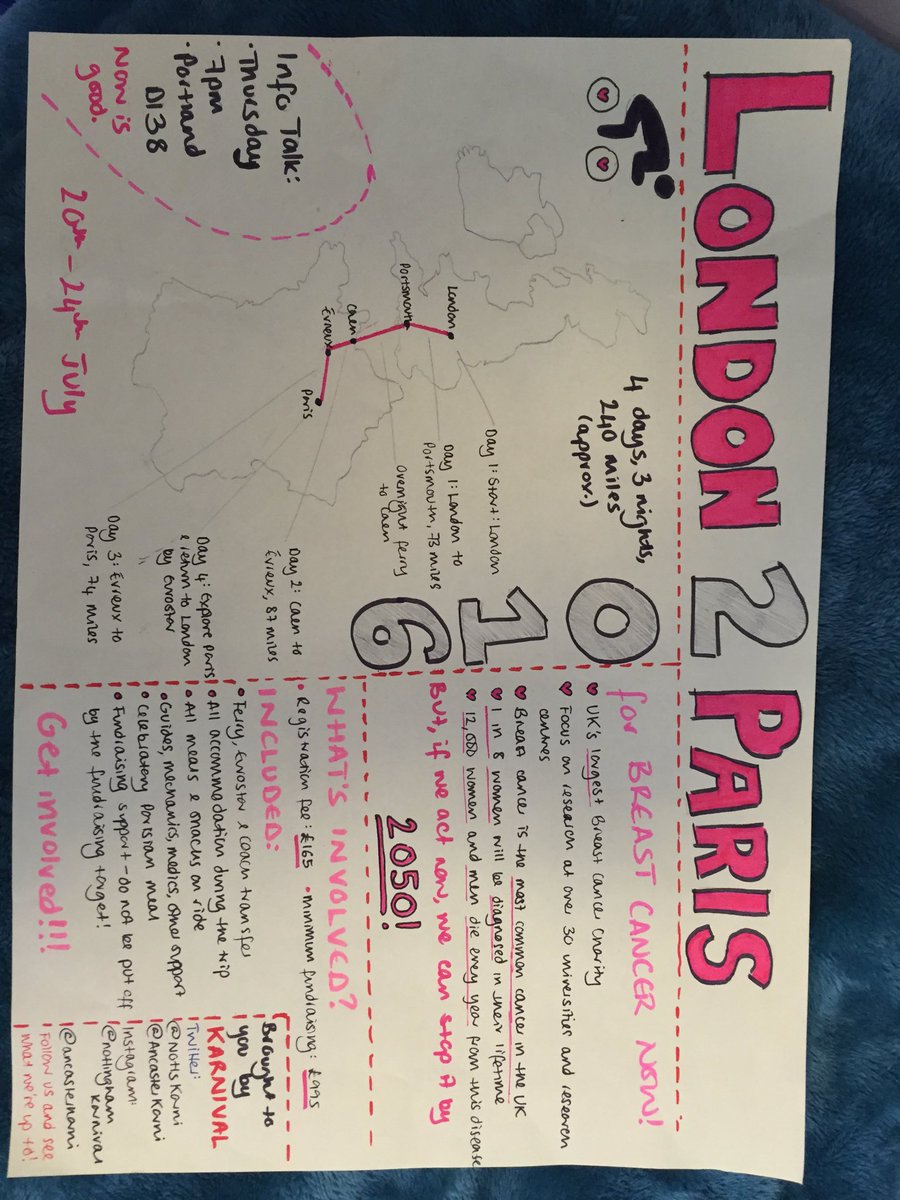 LONDON 2 PARIS
2016
4 days, 3 nights,
240 miles
(approx.)
Day 1: Start: London
Day 1: London to
Portsmouth, 73 miles
Overnight ferry
to Caen
Day 2: Caen to
Évreux, 87 miles
Day 4: Explore Paris
& return to London
by Eurostar
Day 3: Évreux to
Paris, 74 miles
London
Portsmouth
Caen
Évreux
Paris
Info Talk:
• Thursday
• 7pm
• Portland
D138
Now is
good.
20th - 24th July
for BREAST CANCER NOW!
UK's largest breast cancer charity
Focus on research at over 30 universities and research
centres
Breast cancer is the most common cancer in the UK
1 in 8 women will be diagnosed in their lifetime
12,000 women and men die every year from this disease
But, if we act now, we can stop it by
2050!
WHAT'S INVOLVED?
• Registration fee: £165 • minimum fundraising: £995
INCLUDED:
• Ferry, Eurostar & coach transfer
• All accommodation during the trip
• All meals & snacks on ride
• Guides, mechanics, medics, other support
• Celebratory Parisian meal
• Fundraising support - do not be put off
by the fundraising target!
Get involved!!!
Brought to
you by
KARNIVAL
Twitter:
@NottsKarni
@AncasterKarni
Instagram:
@nottingham
karnival
@ancasterkarni
Follow us and see
what we're up to!